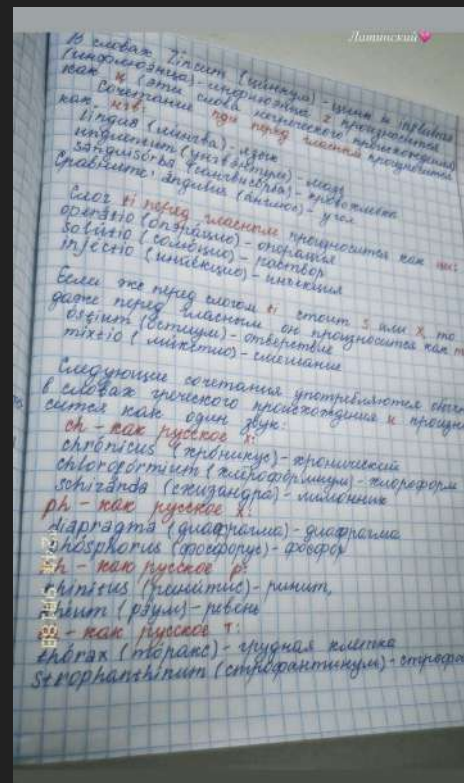 Латинский
В словах Zincum (цинкум) - цинк и influenza
(инфлюэнца) - инфлюэнца z произносится
как ц (эти слова негреческого происхождения)
Сочетание ngu перед гласным произносится
как нгв:
lingua (лингва) - язык
unguentum (унгвэнтум) - мазь
sanguisorba (сангвисорба) - кровохлебка
Сравните: angulus (ангюлюс) - угол
Слог ti перед гласным произносится как
operatio (опэрацио) - операция
solutio (солюцио) - раствор
injectio (инйекцио) - инъекция
Если же перед слогом ti стоит s или x, то
даже перед гласным он произносится как
ostium (остиум) - отверстие
mixtio (микстио) - смешание
Следующие сочетания употребляются
в словах греческого происхождения и
сится как один звук:
ch - как русское х:
chrónicus (хроникус) - хронический
chlorofórmium (хлороформиум) - хлороформ
schizanda (схизандра) - лимонник
ph - как русское
diapragma (диафрагма) - диафрагма
phósphorus (фосфорус) - фосфор
как русское р:
(ринитис) - ринит,
rheum (рэум) - ревень
- как русское т:
thórax (торакс) - грудная клетка
strophanthinum (строфантинум)